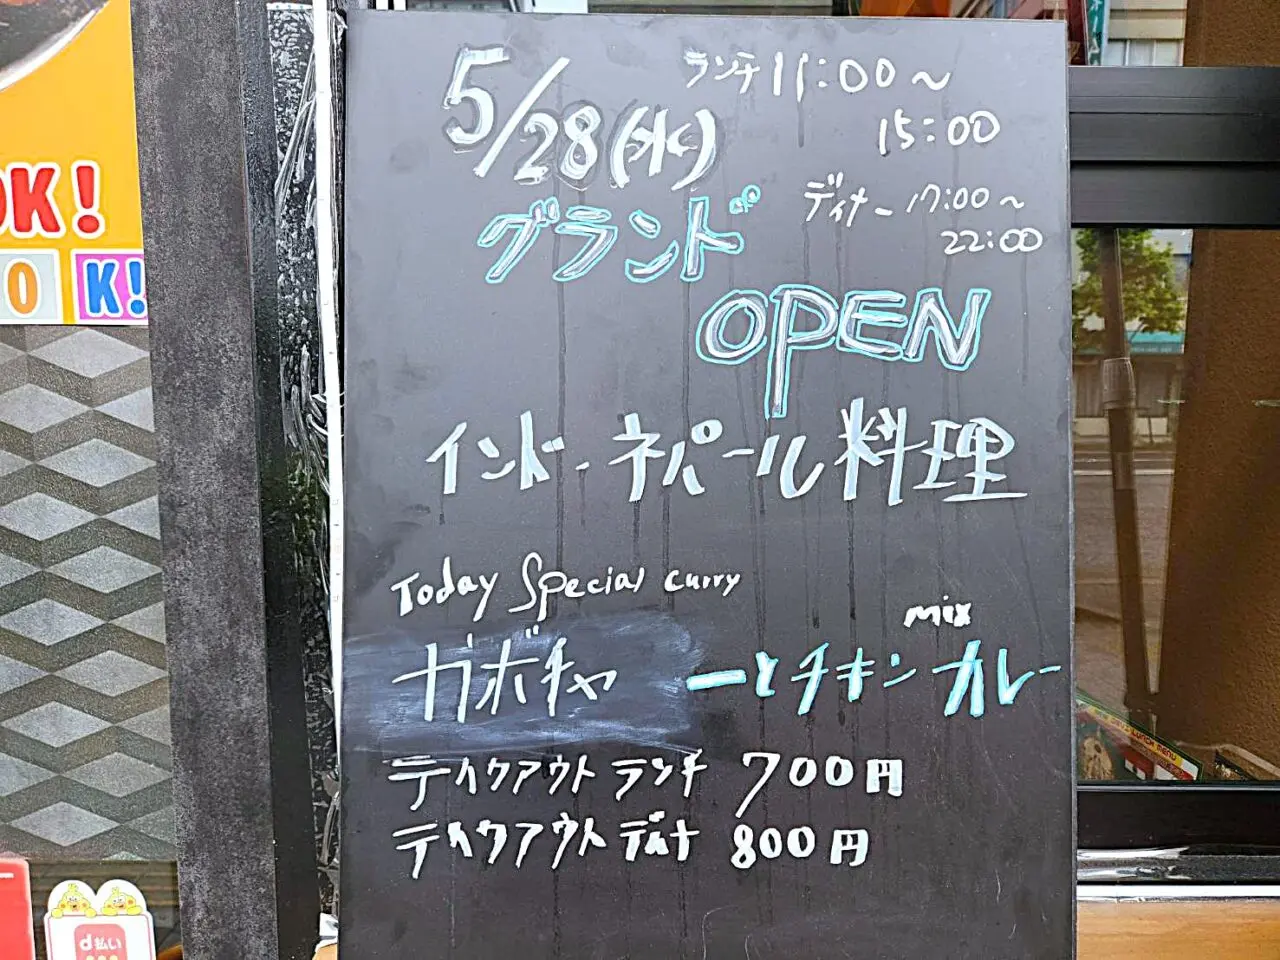 5/28(水)
ランチ 11:00~
15:00
ディナー 17:00~
22:00
グランド
OPEN
インド・ネパール料理
Today Special curry
mix
ガボチャ ーとチキンカレー
テイクアウトランチ 700円
テイクアウトディナ 800円
OK!
OK!
d払い
LUNCH MENU